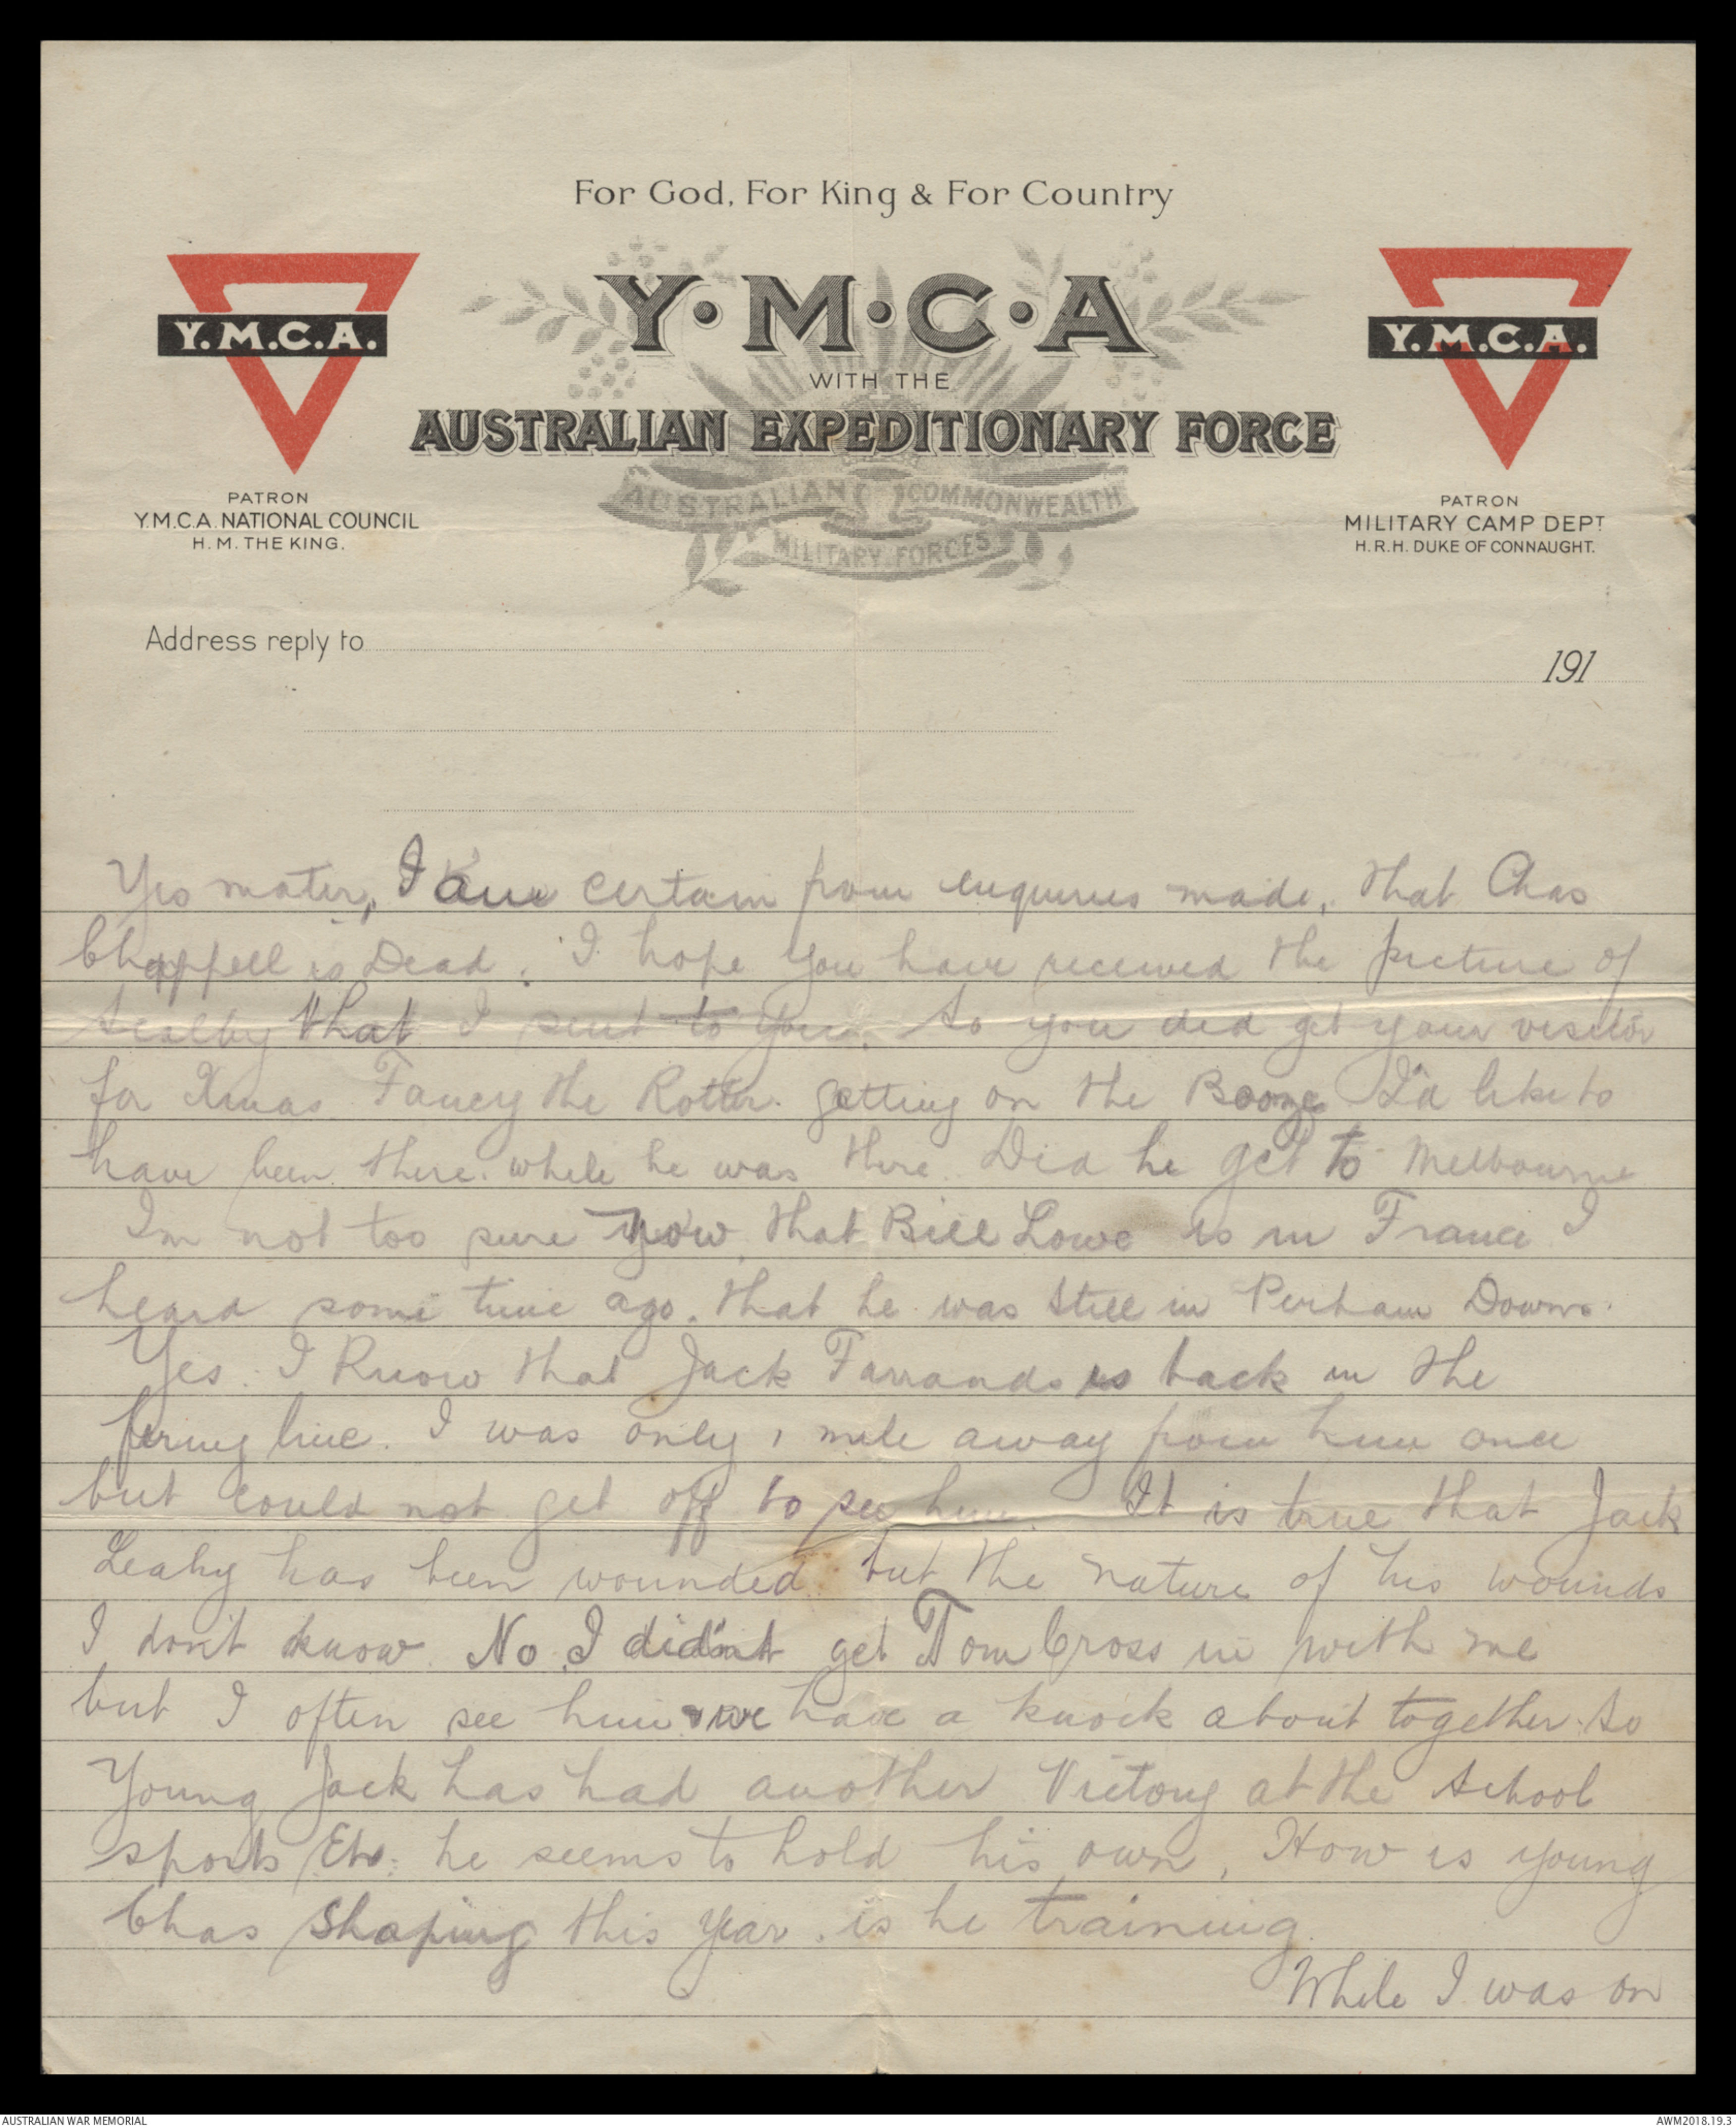 For God, For King & For Country
Y.M.C.A
WITH THE
AUSTRALIAN EXPEDITIONARY FORCE
AUSTRALIAN COMMONWEALTH
MILITARY FORCES
Y.M.C.A.
PATRON
Y.M.C.A. NATIONAL COUNCIL
H.M. THE KING.
Y.M.C.A.
PATRON
MILITARY CAMP DEPT
H.R.H. DUKE OF CONNAUGHT.
Address reply to
191
Yes mater, I am certain from enquiries made, that Chas
Chappell is Dead. I hope you have received the picture of
that I sent to you. So you did get your visitor
for Xmas. Fancy the Rotter. getting on the Booze I'd like to
have been there. while he was there. Did he get to Melbourne
Im not too sure now, that Bill Lowe is in France I
heard some time ago. that he was still in Perham Downs.
Yes. I know that Jack Farrands is back in the
firing line. I was only 1 mile away from him once
but could not get off to see him. It is true that Jack
Leahy has been wounded. but the nature of his wounds
I don't know. No I did'nt get Tom Cross in with me
but I often see him & we have a knock about together. So
Young Jack has had another Victory at the School
sports Etc. he seems to hold his own, How is young
Chas Shaping this year. is he training.
While I was on
AUSTRALIAN WAR MEMORIAL
AWM2018.19.3